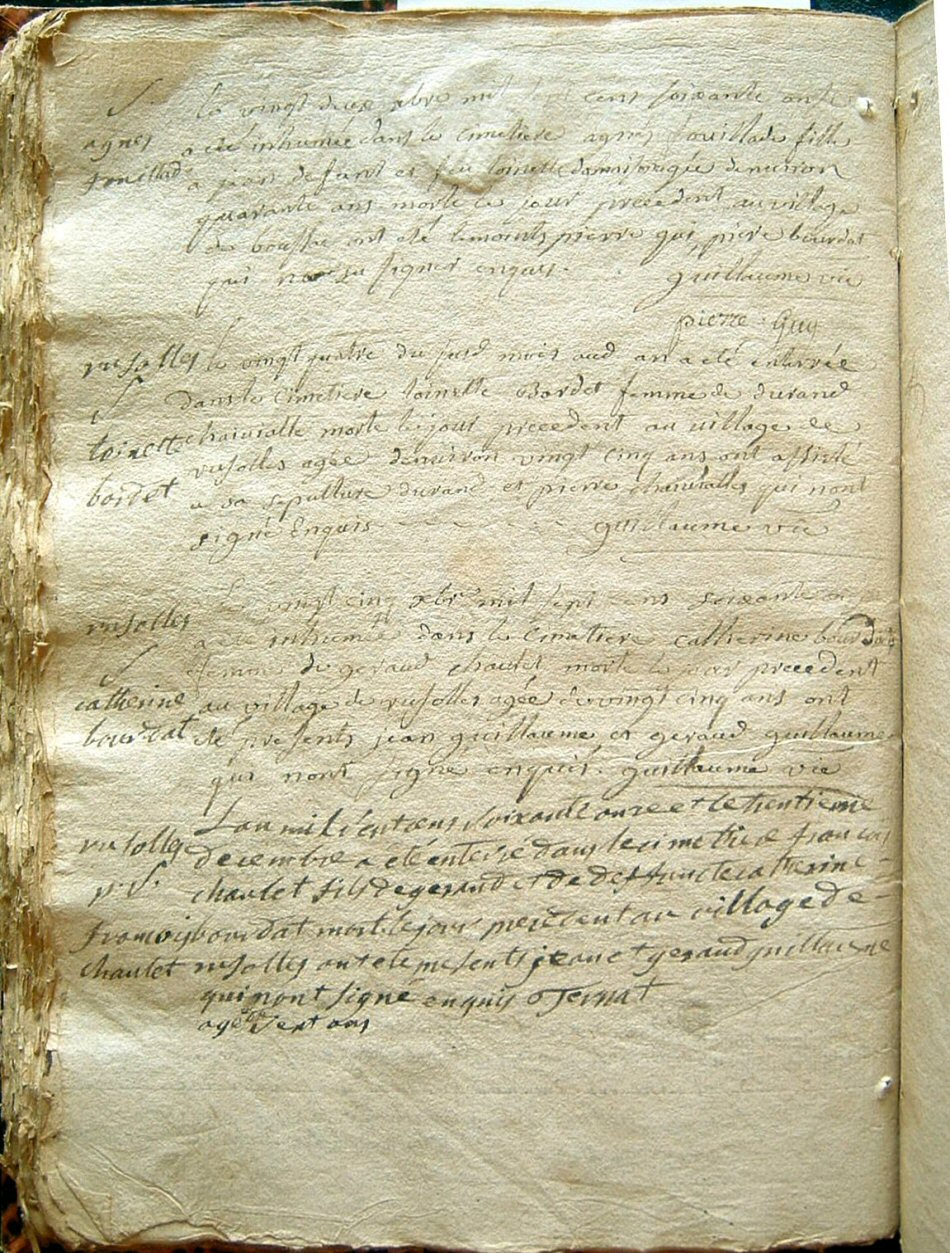 S.
agnes
fouillade
le vingt deux xbre mil sept cens soixante onse
a été inhumée dans le cimetiere agnés fouillade fille
a jean defunt et feu toinette agée denviron
quarante ans morte le jour precedent au village
de ont été temoints pierre gui, piere bourdat
qui nont su signer enquis. guillaume vic
pierre Guy
rusolles
S.
toinette
bordet
le vingt quatre du susd mois aud an a été enterrée
dans le cimetiere toinette Bordet femme de durand
morte le jour precedent au village de
rusolles agée denviron vingt cinq ans ont assisté
a sa sepulture durand et pierre qui nont
signé Enquis guillaume vic
rusolles
S
catherine
bourdat
Le vingt cinq xbre mil sept cens soixante
a été inhumée dans le cimetiere catherine bourdat
femme de geraud chaulet morte le jour precedent
au village de rusolles agée de vingt cinq ans ont
été presents jean guillaume et geraud guillaume
qui nont signé enquis. guillaume vic
rusolles
p. S.
francois
chaulet
L an mil sept cens soixante onze et le trentieme
decembre a été enterré dans le cimetiere francois
chaulet fils de geraud et de deffuncte catherine
bourdat mort le jour precedent au village de
rusolles ont ete presents jean et geraud guillaume
qui nont signé enquis Ternat
agé sept ans